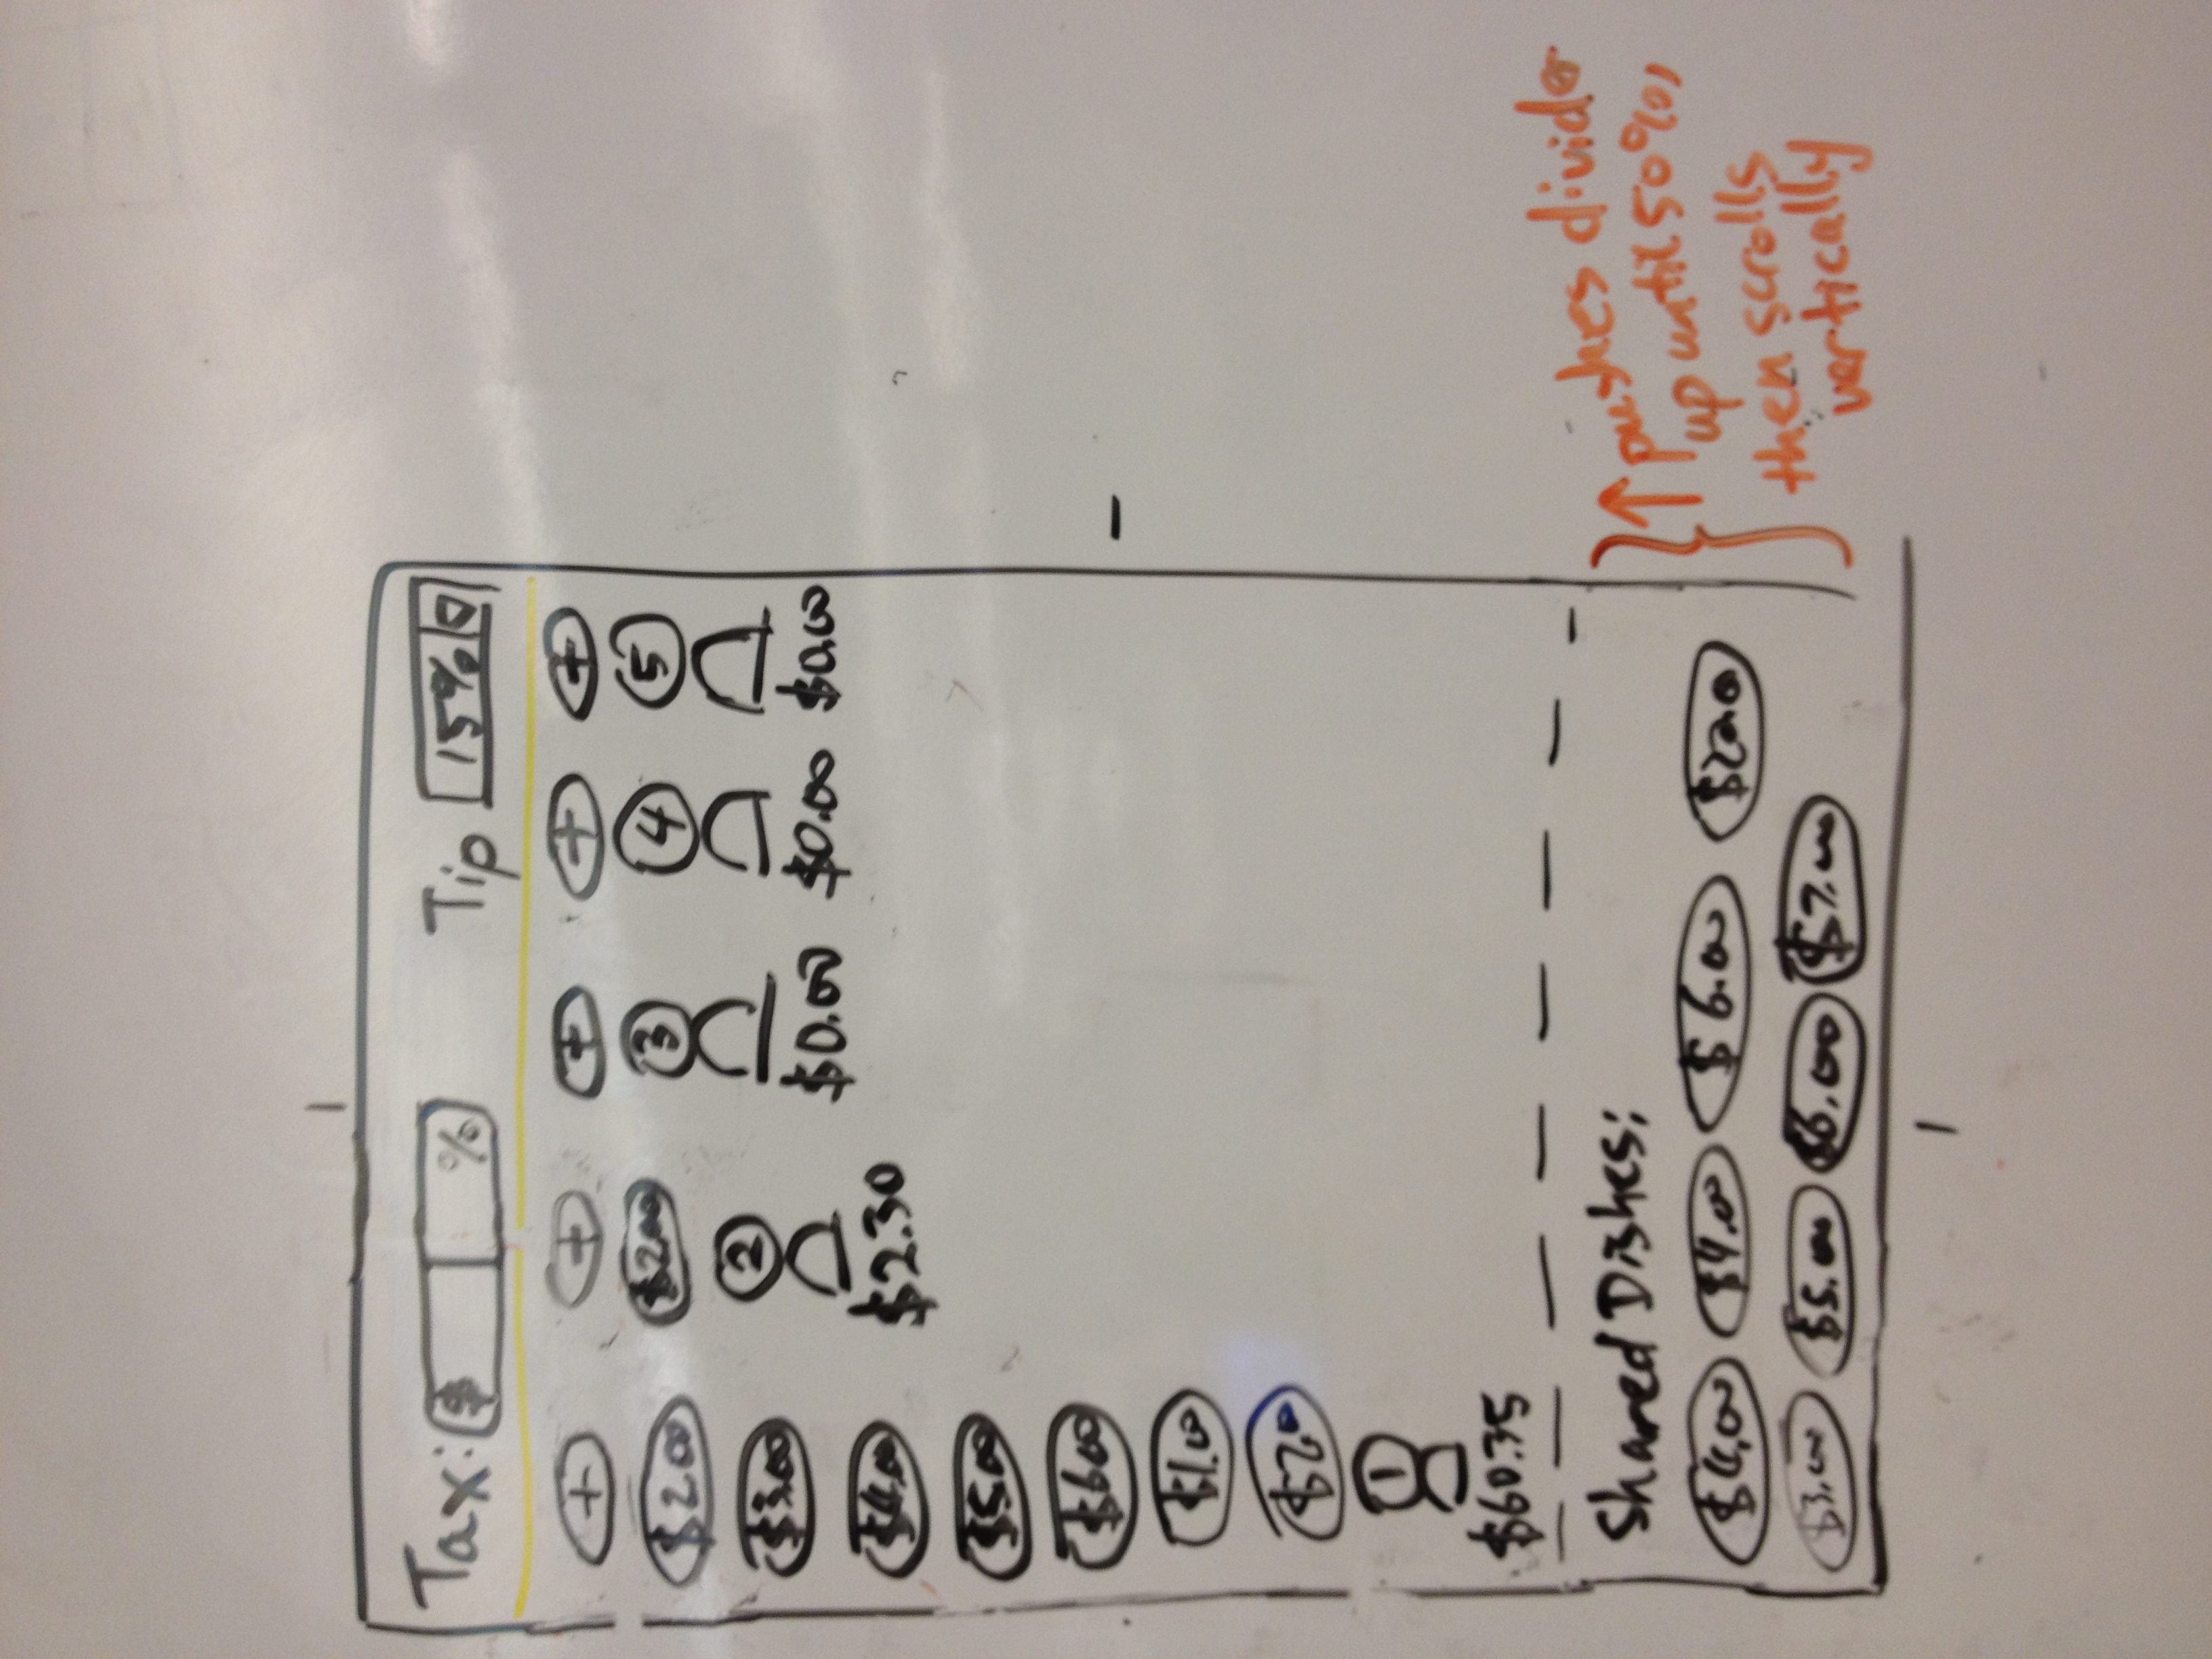 Tax: $ %   Tip 15%
+ + + + +
$2.00 $2.00 3 4 5
$3.00 2 $0.00 $0.00 $0.00
$4.00 $2.30
$5.00
$6.00
$1.00
1
$60.35
Shared Dishes:
$4.00 $4.00 $6.00 $20.00
$3.00 $5.00 $6.00 $7.00
↑ pushes divider
up until 50%,
then scrolls
vertically